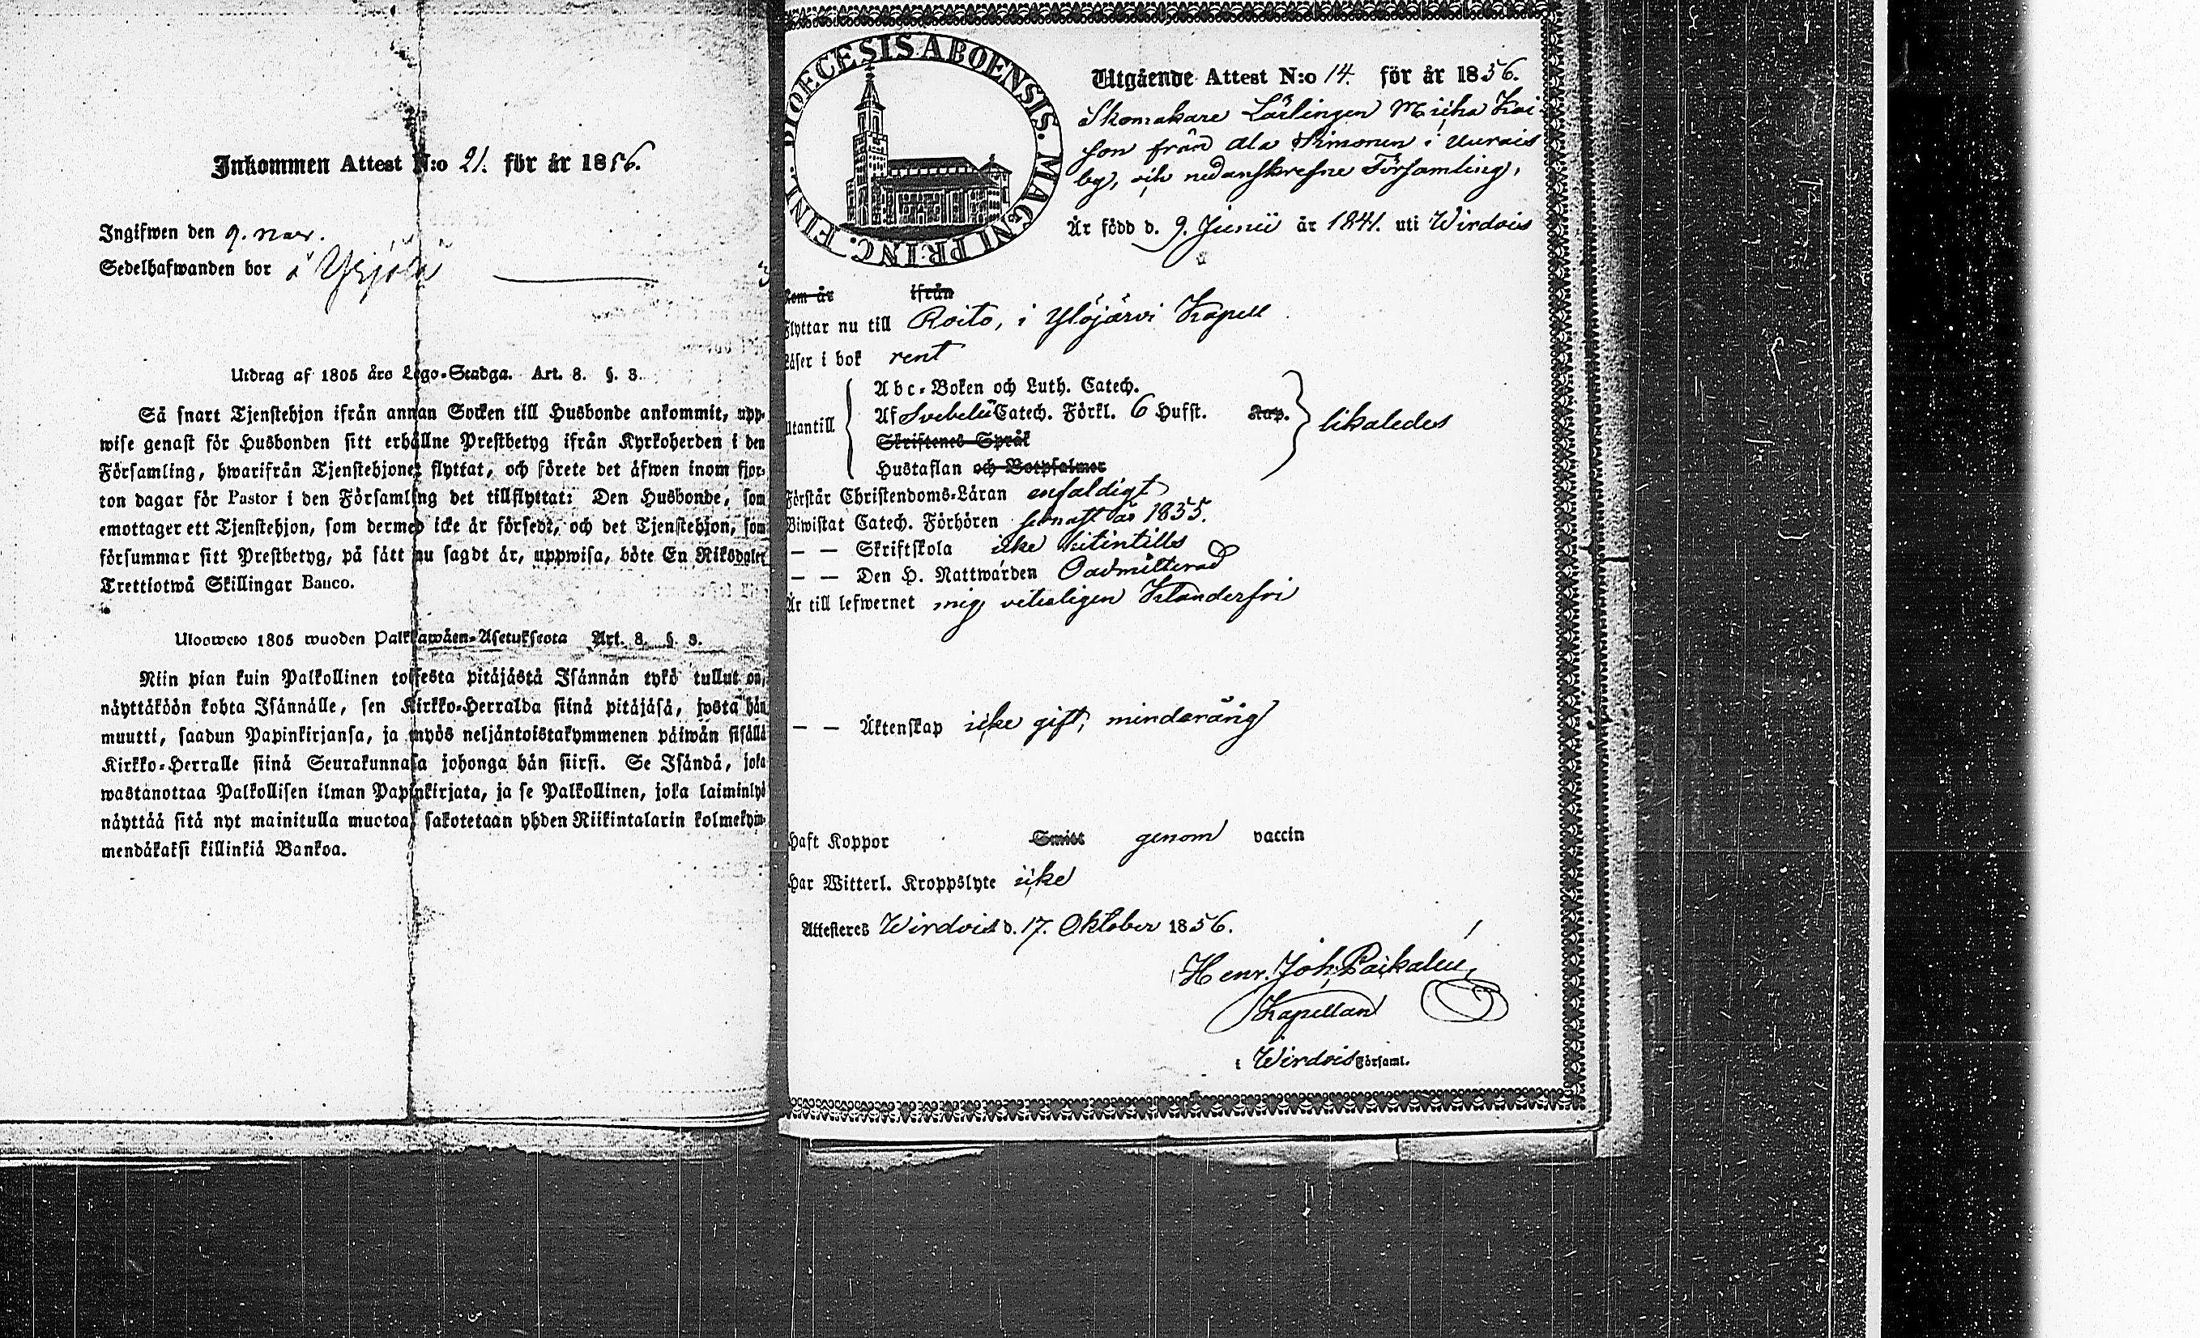 Inkommen Attest N:o 21. för år 1856.
Ingifwen den 9. Nov.
Sedelhafwanden bor å Yrjölä
Utdrag af 1805 års Lego-Stadga. Art. 8. §. 3.
Så snart Tjenstehjon ifrån annan Socken till Husbonde ankommit, upp-
wise genast för Husbonden sitt erhållne Prestbetyg ifrån Kyrkoherden i den
Församling, hwarifrån Tjenstehjonet flyttat, och förete det äfwen inom fjor-
ton dagar för Pastor i den Församling det tillflyttat: Den Husbonde, som
emottager ett Tjenstehjon, som dermed icke är försedt, och det Tjenstehjon, som
försummar sitt Prestbetyg, på sätt nu sagdt är, uppwisa, böte En Riksdaler
Trettiotwå Skillingar Banco.
Ulosweto 1805 wuoden Palkkawäen-Asetuksesta Art. 8. §. 3.
Niin pian kuin Palkollinen toisesta pitäjästä Isännän tykö tullut on,
näyttäköön kohta Isännälle, sen Kirkko-Herralda siinä pitäjäsä, josta hän
muutti, saadun Papinkirjansa, ja myös neljäntoistakymmenen päiwän sisällä
Kirkko-Herralle siinä Seurakunnasa johonga hän siirsi. Se Isändä, joka
wastanottaa Palkollisen ilman Papinkirjata, ja se Palkollinen, joka laiminlyö
näyttää sitä nyt mainitulla muotoa, sakotetaan yhden Riikintalarin kolmekym-
mendäkaksi killinkiä Bankoa.
DIOECESIS ABOENSIS. MAGNI PRINC. FINL.
Utgående Attest N:o 14. för år 1856.
Skomakare Lärlingen Micha Kai-
son från Ala Simonen i Uurais
by, och nedanskrefne Församling,
Är född d. 9. Junii år 1841. uti Wirdois
Kom år ifrån
Flyttar nu till Roito, i Ylöjärvi Kapell
Läser i bok rent
Utantill
Abc-Boken och Luth. Catech.
Af Svebelii Catech. Förkl. 6 Hufst. Kap.
Skriftenes Språk
Hustaflan och Botpsalmer
likaledes
Förstår Christendoms-Läran enfaldigt
Biwistat Catech. Förhören senast år 1855.
— — Skriftskola icke hitintills
— — Den H. Nattwarden Oadmitterad
Är till lefwernet mig veterligen Klanderfri
— — Äktenskap icke gift, minderårig
Haft Koppor Smitt genom vaccin
Har Witterl. Kroppslyte icke
Attesteres Wirdois d. 17. Oktober 1856.
Henr. Joh. Paikalén,
Kapellan
i Wirdois Församl.